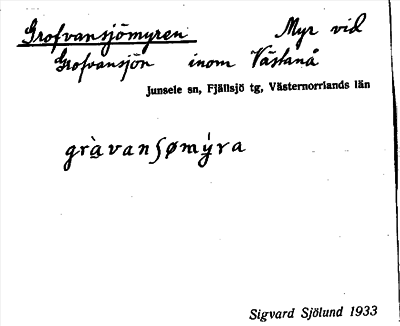 Grofvansjömyren Myr vid
Grofvansjön inom Västanå
Junsele sn, Fjällsjö tg, Västernorrlands län
gràvanʃømýra
Sigvard Sjölund 1933